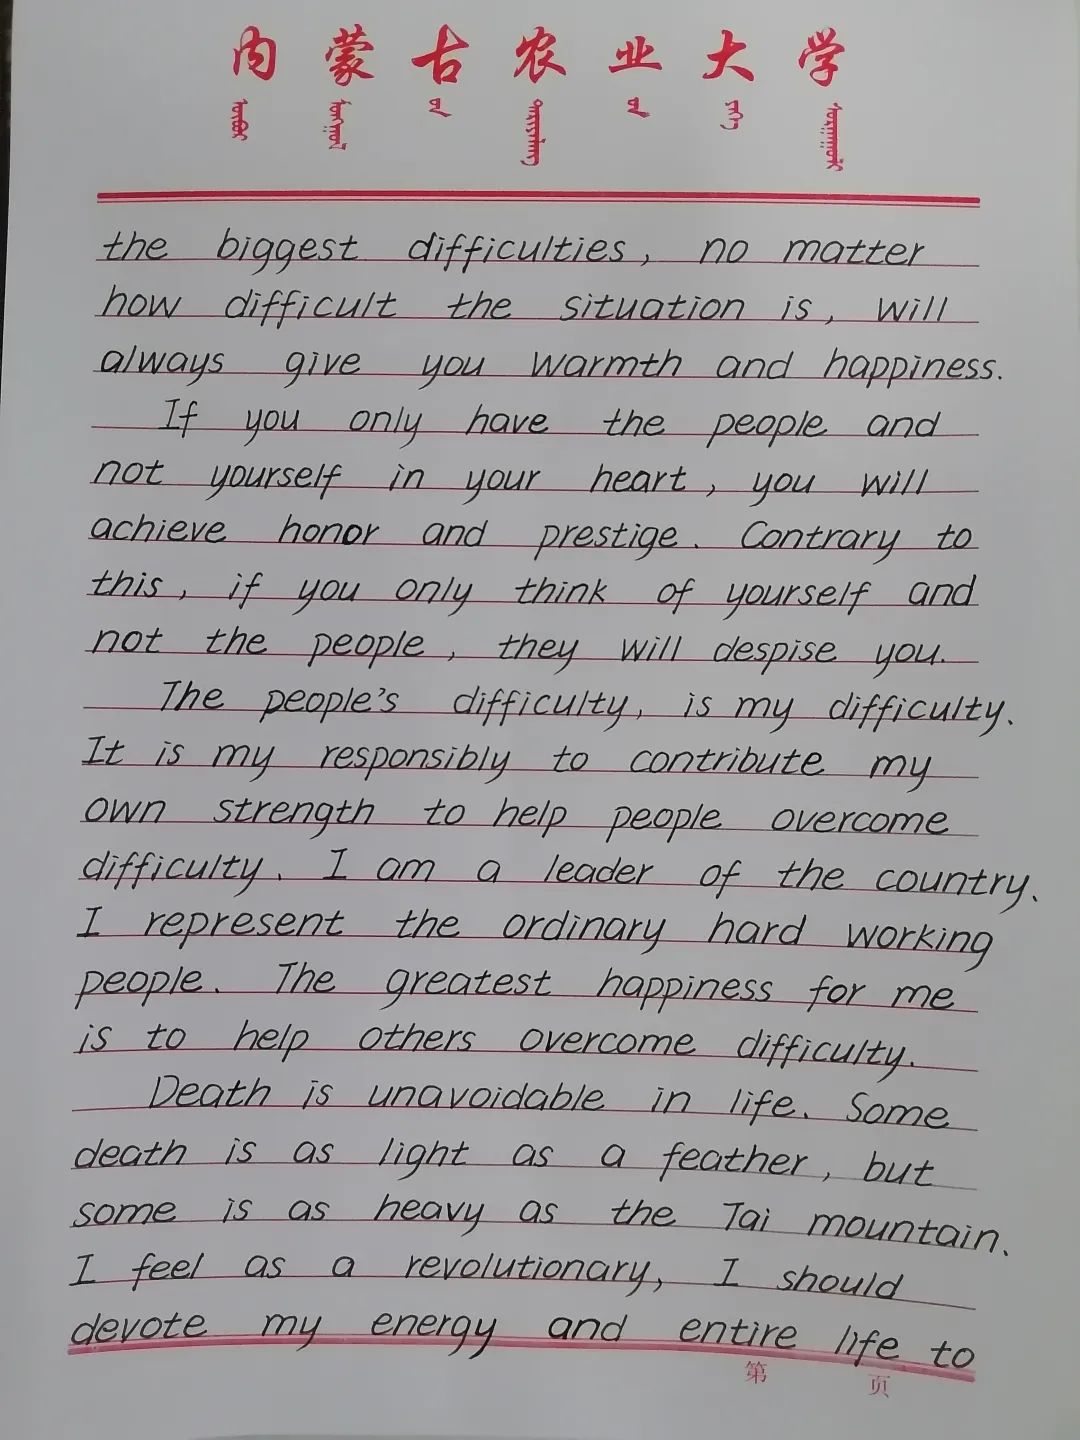 内蒙古农业大学
the biggest difficulties, no matter
how difficult the situation is, will
always give you warmth and happiness.
If you only have the people and
not yourself in your heart, you will
achieve honor and prestige. Contrary to
this, if you only think of yourself and
not the people, they will despise you.
The people's difficulty, is my difficulty.
It is my responsibly to contribute my
own strength to help people overcome
difficulty. I am a leader of the country.
I represent the ordinary hard working
people. The greatest happiness for me
is to help others overcome difficulty.
Death is unavoidable in life. Some
death is as light as a feather, but
some is as heavy as the Tai mountain.
I feel as a revolutionary, I should
devote my energy and entire life to
第 页